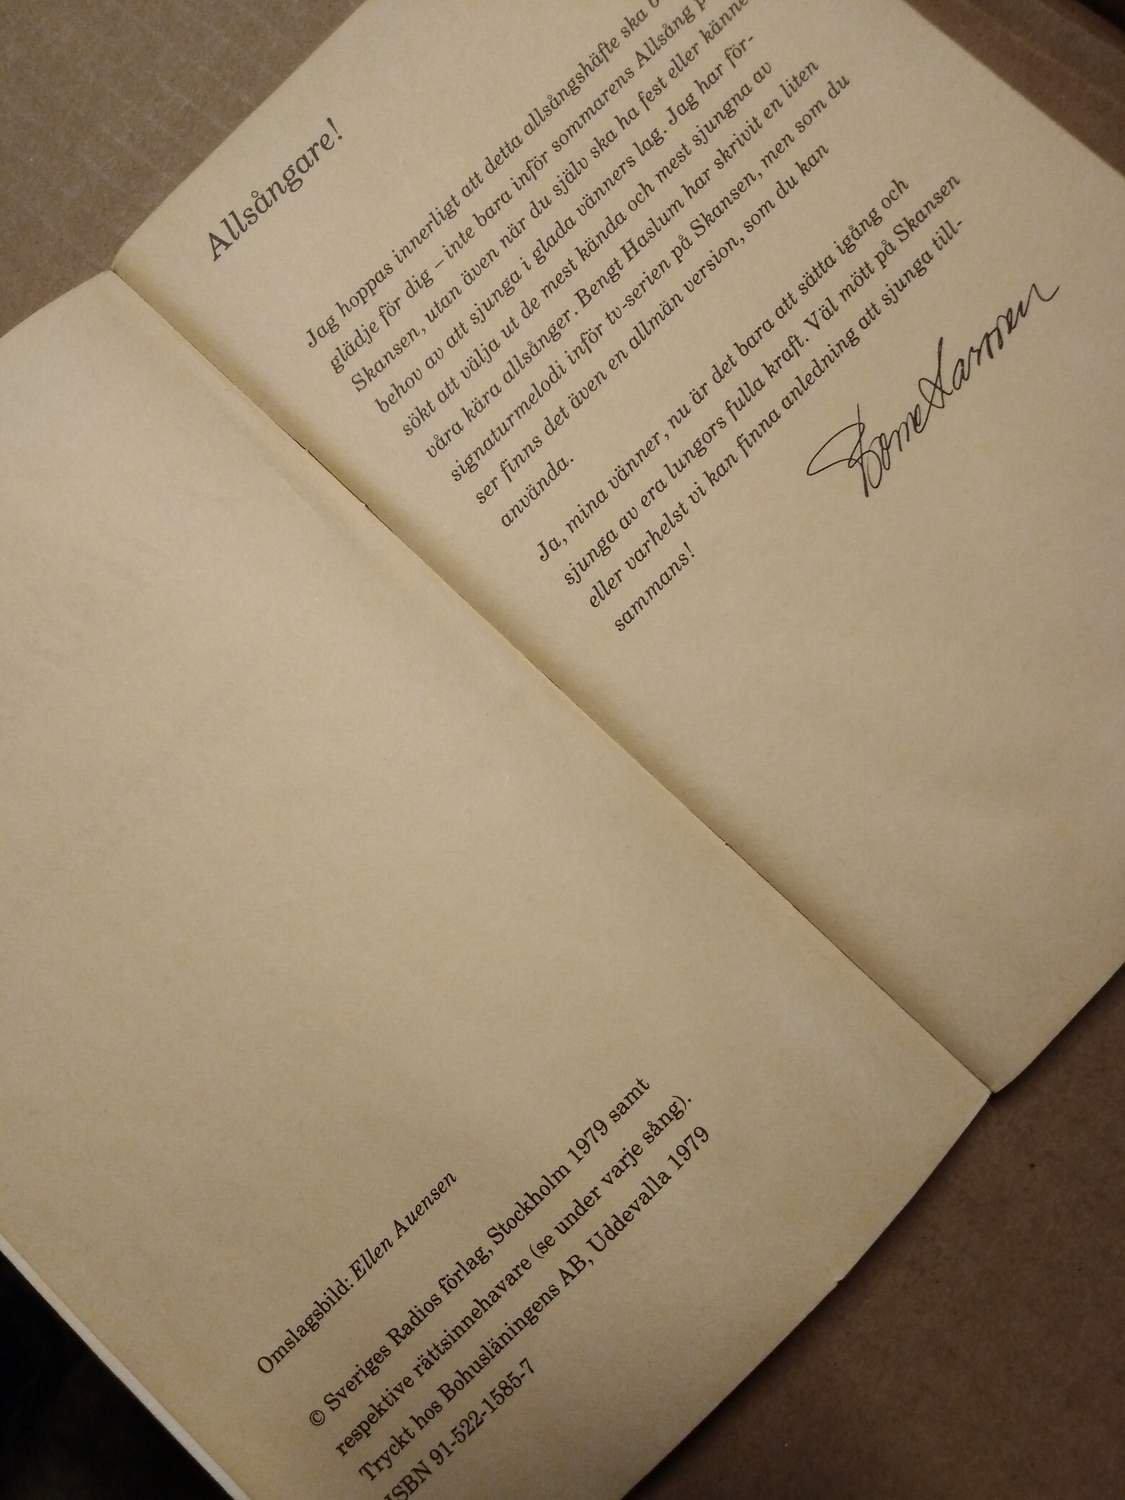 Omslagsbild: Ellen Auensen
© Sveriges Radios förlag, Stockholm 1979 samt
respektive rättsinnehavare (se under varje sång).
Tryckt hos Bohusläningens AB, Uddevalla 1979
ISBN 91-522-1585-7
Allsångare!
Jag hoppas innerligt att detta allsångshäfte ska
glädje för dig – inte bara inför sommarens Allsång
Skansen, utan även när du själv ska ha fest eller känne
behov av att sjunga i glada vänners lag. Jag har för-
sökt att välja ut de mest kända och mest sjungna av
våra kära allsånger. Bengt Haslum har skrivit en liten
signaturmelodi inför tv-serien på Skansen, men som du
ser finns det även en allmän version, som du kan
använda.
Ja, mina vänner, nu är det bara att sätta igång och
sjunga av era lungors fulla kraft. Väl mött på Skansen
eller varhelst vi kan finna anledning att sjunga till-
sammans!